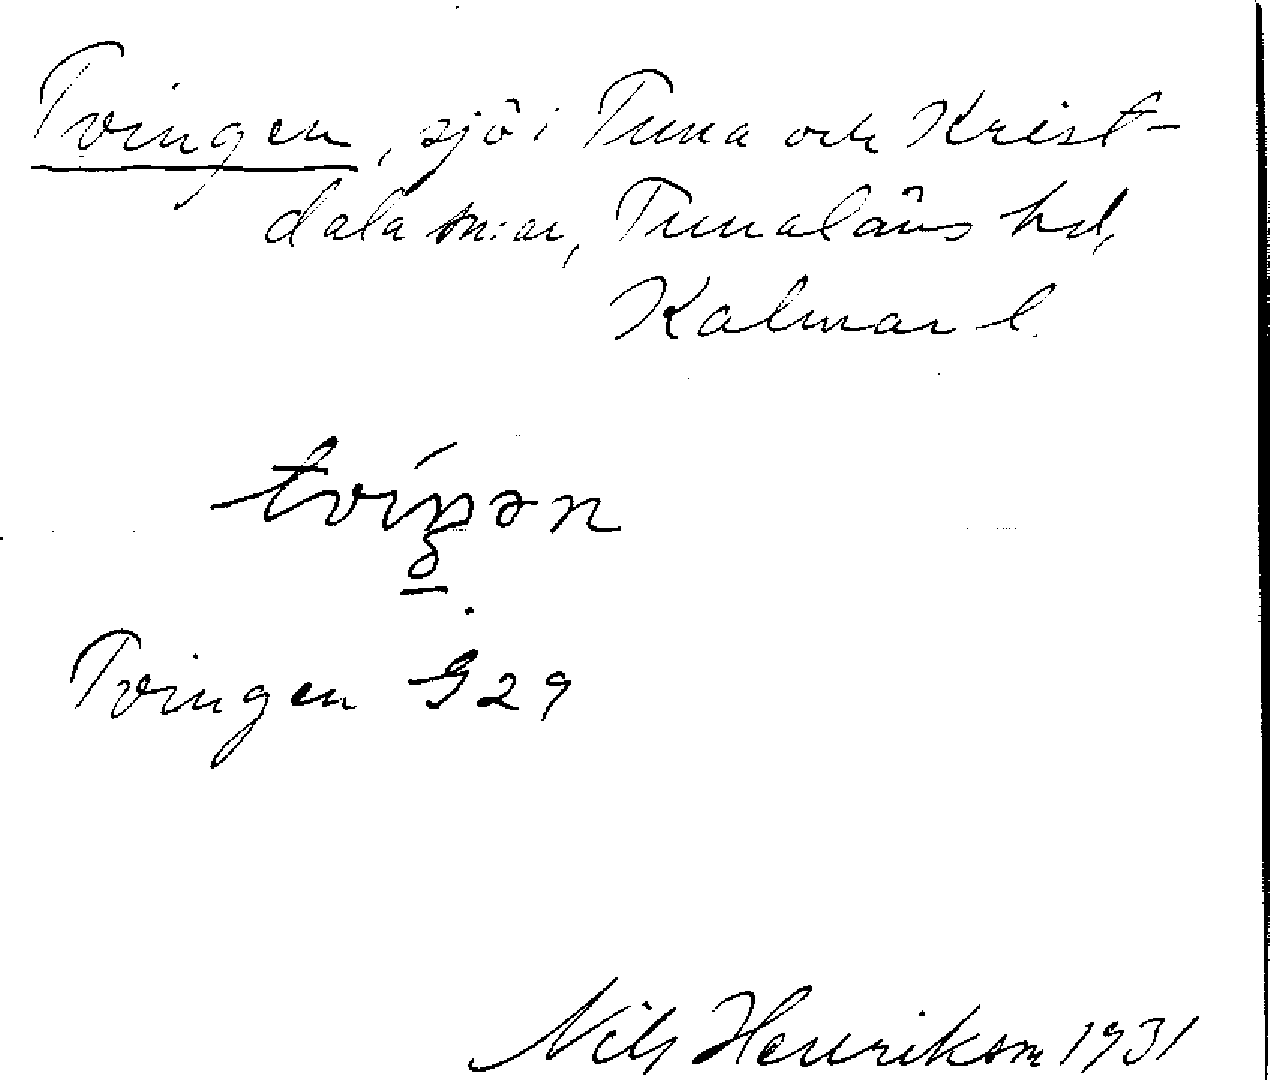 Tvingen, sjö i Tuna och Krist-
dala sn:ar, Tunaläns hd,
Kalmar l.
tvíŋən
Tvingen G29
Nils Henrikson 1931